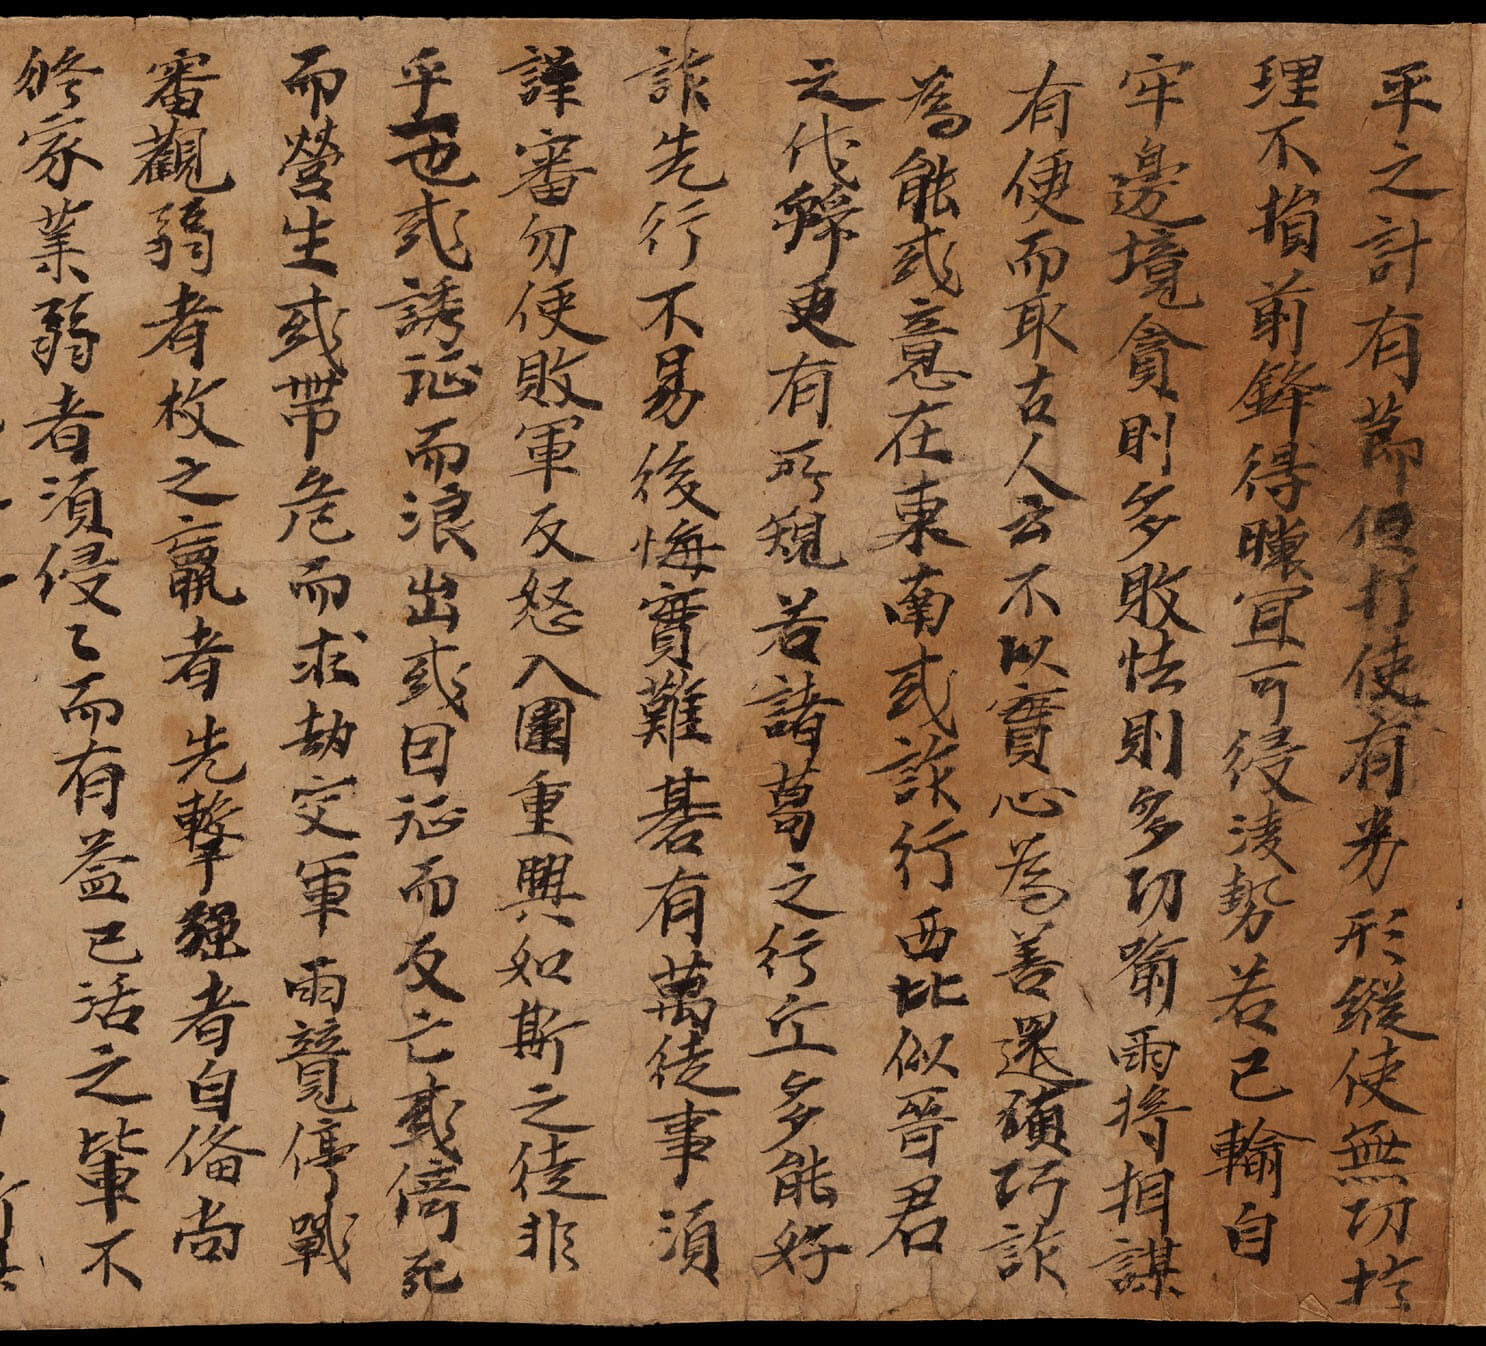 平之計有節但打使有劣形縱使無切於
理不損前鋒得隙宜可侵淩勢若已輸自
牢邊境貪則多敗怯則多切喻雨將相謀
有便而取古人云不以實心為善還須巧詐
為能或意在東南或詐行西北似晉君
之伐虢更有所規若諸葛之行丘多能好
詐先行不易後悔實難碁有萬徒事須
詳審勿便敗軍反怒入圍重興如斯之徒非
乎一也或誘征而浪出或因征而反亡或倚死
而營生或帶危而求劫交軍雨競停戰
審觀弱者枚之羸者先擊強者自俻尚
修家業弱者須侵〻而有益已活之輩不